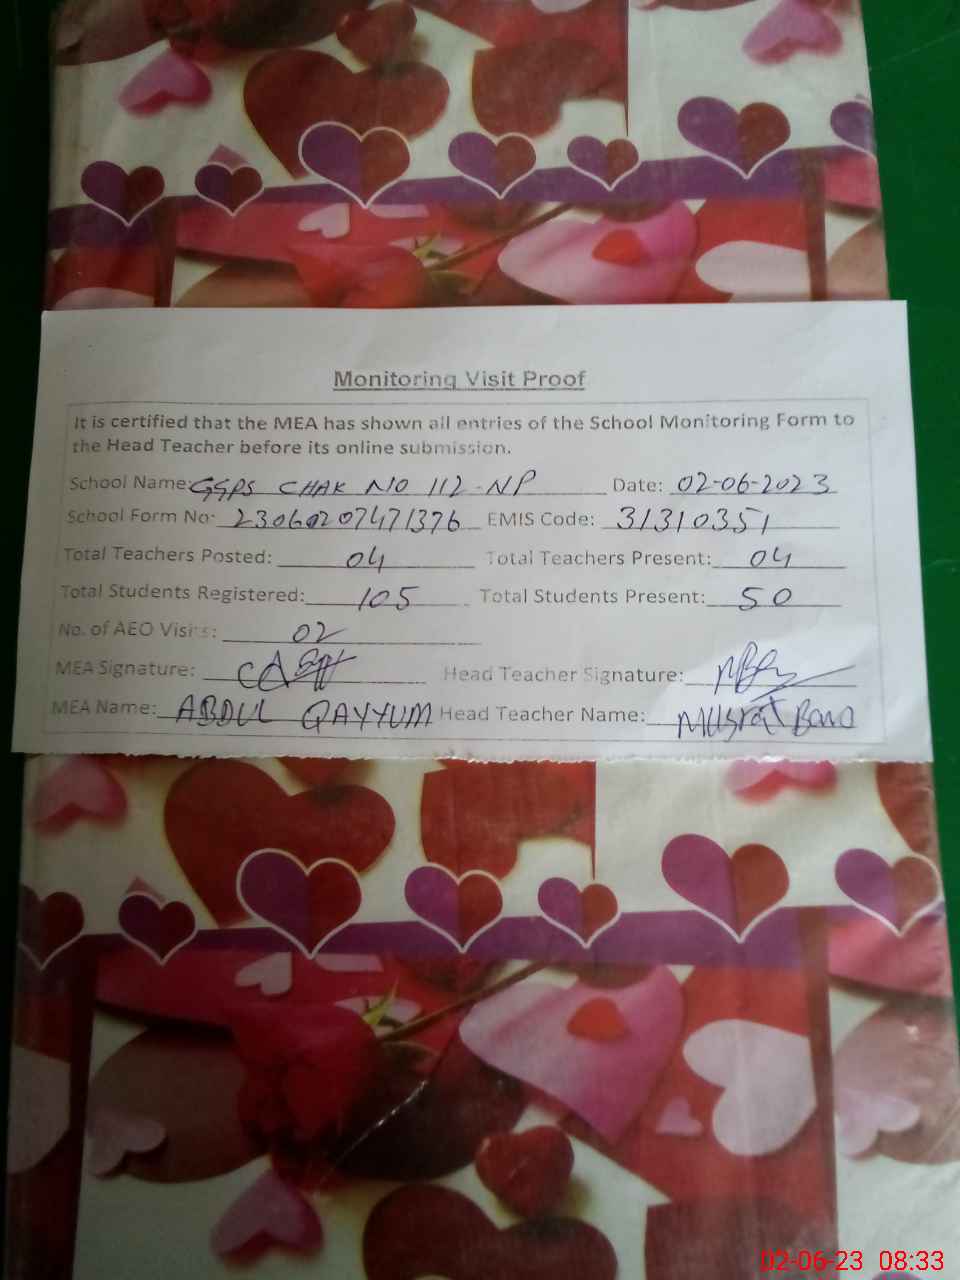 Monitoring Visit Proof
It is certified that the MEA has shown all entries of the School Monitoring Form to
the Head Teacher before its online submission.
School Name: GGPS CHAK NO 112-NP Date: 02-06-2023
School Form No: 23060207471376 EMIS Code: 31310351
Total Teachers Posted: 04 Total Teachers Present: 04
Total Students Registered: 105 Total Students Present: 50
No. of AEO Visits: 02
MEA Signature: Head Teacher Signature:
MEA Name: ABDUL QAYYUM Head Teacher Name: Musrat Bano
02-06-23 08:33